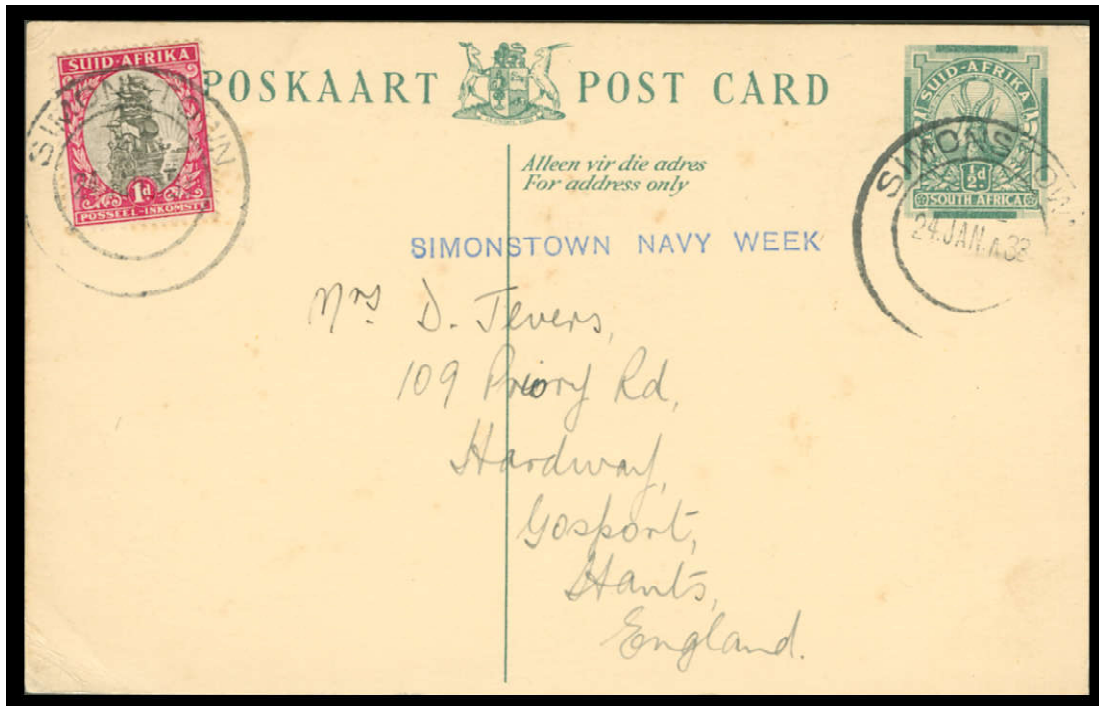 SUID-AFRIKA
1d
POSSEEL-INKOMSTE
SIMONSTOWN
POSKAART POST CARD
Alleen vir die adres
For address only
SUID-AFRIKA
½d
SOUTH AFRICA
SIMONSTOWN
24.JAN.A 38
SIMONSTOWN NAVY WEEK
Mrs D. Jevers,
109 Priory Rd,
Hardway,
Gosport,
Hants,
England.